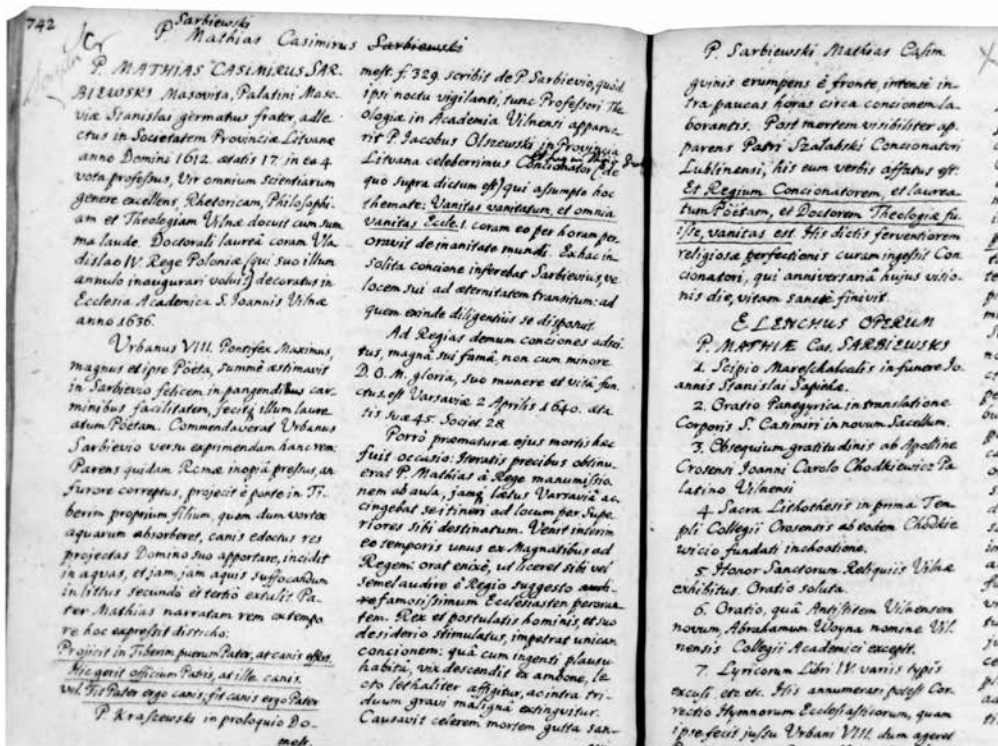 742
Sarbiewski
P. Mathias Casimirus Sarbiewski
P. MATHIAS CASIMIRUS SAR-
BIEWSKI Masovita, Palatini Maso-
viæ Stanislai germanus frater, adle-
ctus in Societatem Provinciæ Lituanæ
anno Domini 1612. ætatis 17. in ea 4
vota professus, Vir omnium scientiarum
genere excellens, Rhetoricam, Philosophi-
am et Theologiam Vilnæ docuit cum sum
ma laude. Doctorali laureâ coram Vla
dislao IV. Rege Poloniæ (qui suo illum
annulo inaugurari voluit) decoratus in
Ecclesia Academica S. Joannis Vilnæ
anno 1636.
Urbanus VIII. Pontifex Maximus,
magnus et ipse Pöeta, summè æstimavit
in Sarbievio felicem, in pangendibus car
minibus facilitatem, fecitq illum laure
atum Pöetam. Commendaverat Urbanus
Sarbievio versu exprimendam hanc rem:
Parens quidam Romæ inopiâ pressus, an
furore correptus, projecit è ponte in Ti-
berim proprium filium, quem dum vortex
aquarum absorberet, canis edoctus res
projectas Domino suo apportare, incidit
in aquas, et jam jam aquis suffocandum
in littus secundò et tertiò extulit. Pa-
ter Mathias narratam rem extempo
re hoc expressit disticho:
Projicit in Tiberim puerum Pater, at canis effert.
Hic gerit officium Patris, at ille canis.
vel. Fit Pater ergo canis, fit canis ergo Pater
P. Kraszewski in proloquio Do-
mest.
mest. f. 329. scribit de P. Sarbievio, quod
ipsi noctu vigilanti, tunc Professori The
ologiæ in Academia Vilnensi apparue
rit P. Jacobus Olszewski in Provincia
Lituana celeberrimus Concionator (de
quo supra dictum est) qui assumpto hoc
themate: Vanitas vanitatum, et omnia
vanitas Eccle. 1. coram eo per horam per-
oravit de inanitate mundi. Ex hac in
solita concione inferebat Sarbievius, ve
locem sui ad æternitatem transitum: ad
quem exinde diligentiùs se disposuit.
Ad Regias demum conciones adsci
tus, magnâ sui famâ, non cum minore
D.O.M. gloria, suo munere et vitâ fun
ctus est Varsaviæ 2 Aprilis 1640. æta
tis suæ 45. Societ 28
Porrò præmaturæ ejus mortis hæc
fuit occasio: Iteratis precibus obtinu-
erat P. Mathias à Rege manumissio
nem ab aula, jamq lætus Varsaviâ ac
cingebat se itineri ad locum per Supe
riores sibi destinatum. Venit interim
eo temporis unus ex Magnatibus ad
Regem: orat enixè, ut liceret sibi vel
semel audire è Regio suggesto audi
re famosissimum Ecclesiasten peroran
tem. Rex et postulatis hominis, et suo
desiderio stimulatus, impetrat unicam
concionem: quâ cum ingenti plausu
habitâ, vix descendit ex ambone, le
cto lethaliter affigitur, ac intra tri-
duum gravi malignâ extinguitur.
Causavit celerem mortem gutta san-
P. Sarbiewski Mathias Casim.
guinis erumpens è fronte, intensè in-
tra paucas horas circa concionem la-
borantis. Post mortem visibiliter ap-
parens Patri Szalabski Concionatori
Lublinensi, his eum verbis affatus est:
Et Regium Concionatorem, et laurea-
tum Pöetam, et Doctorem Theologiæ fu-
isse, vanitas est. His dictis ferventiorem
religiosæ perfectionis curam ingessit Con
cionatori, qui anniversariâ hujus visio-
nis die, vitam sanctè finivit.
ELENCHUS OPERUM
P. MATHIÆ Cas. SARBIEWSKI
1. Scipio Mareschalcalis in funere Jo
annis Stanislai Sapiehæ.
2. Oratio Panegyrica in translatione
Corporis S. Casimiri in novum Sacellum.
3. Obsequium gratitudinis ab Apolline
Crosensi Joanni Carolo Chodkiewicz Pa
latino Vilnensi
4. Sacra Lithothesis in prima Tem-
pli Collegii Crosensis ab eodem Chodkie
wicio fundati inchoatione.
5. Honor Sanctorum Reliquiis Vilnæ
exhibitus. Oratio soluta.
6. Oratio, quâ Antistitem Vilnensem
novum, Abrahamum Woyna nomine Vil-
nensis Collegii Academici excepit.
7. Lyricorum Libri IV. variis typis
exculi, etc etc. His annumerari potest Cor-
rectio Hymnorum Ecclesiasticorum, quam
ipse fecit jussu Urbani VIII. dum ageret